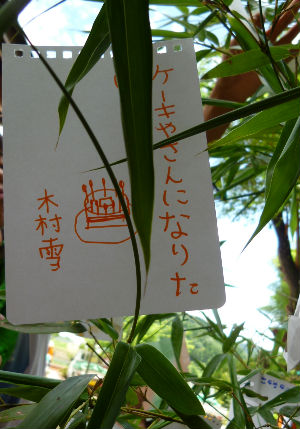 ケーキやさんになりた
木村雪